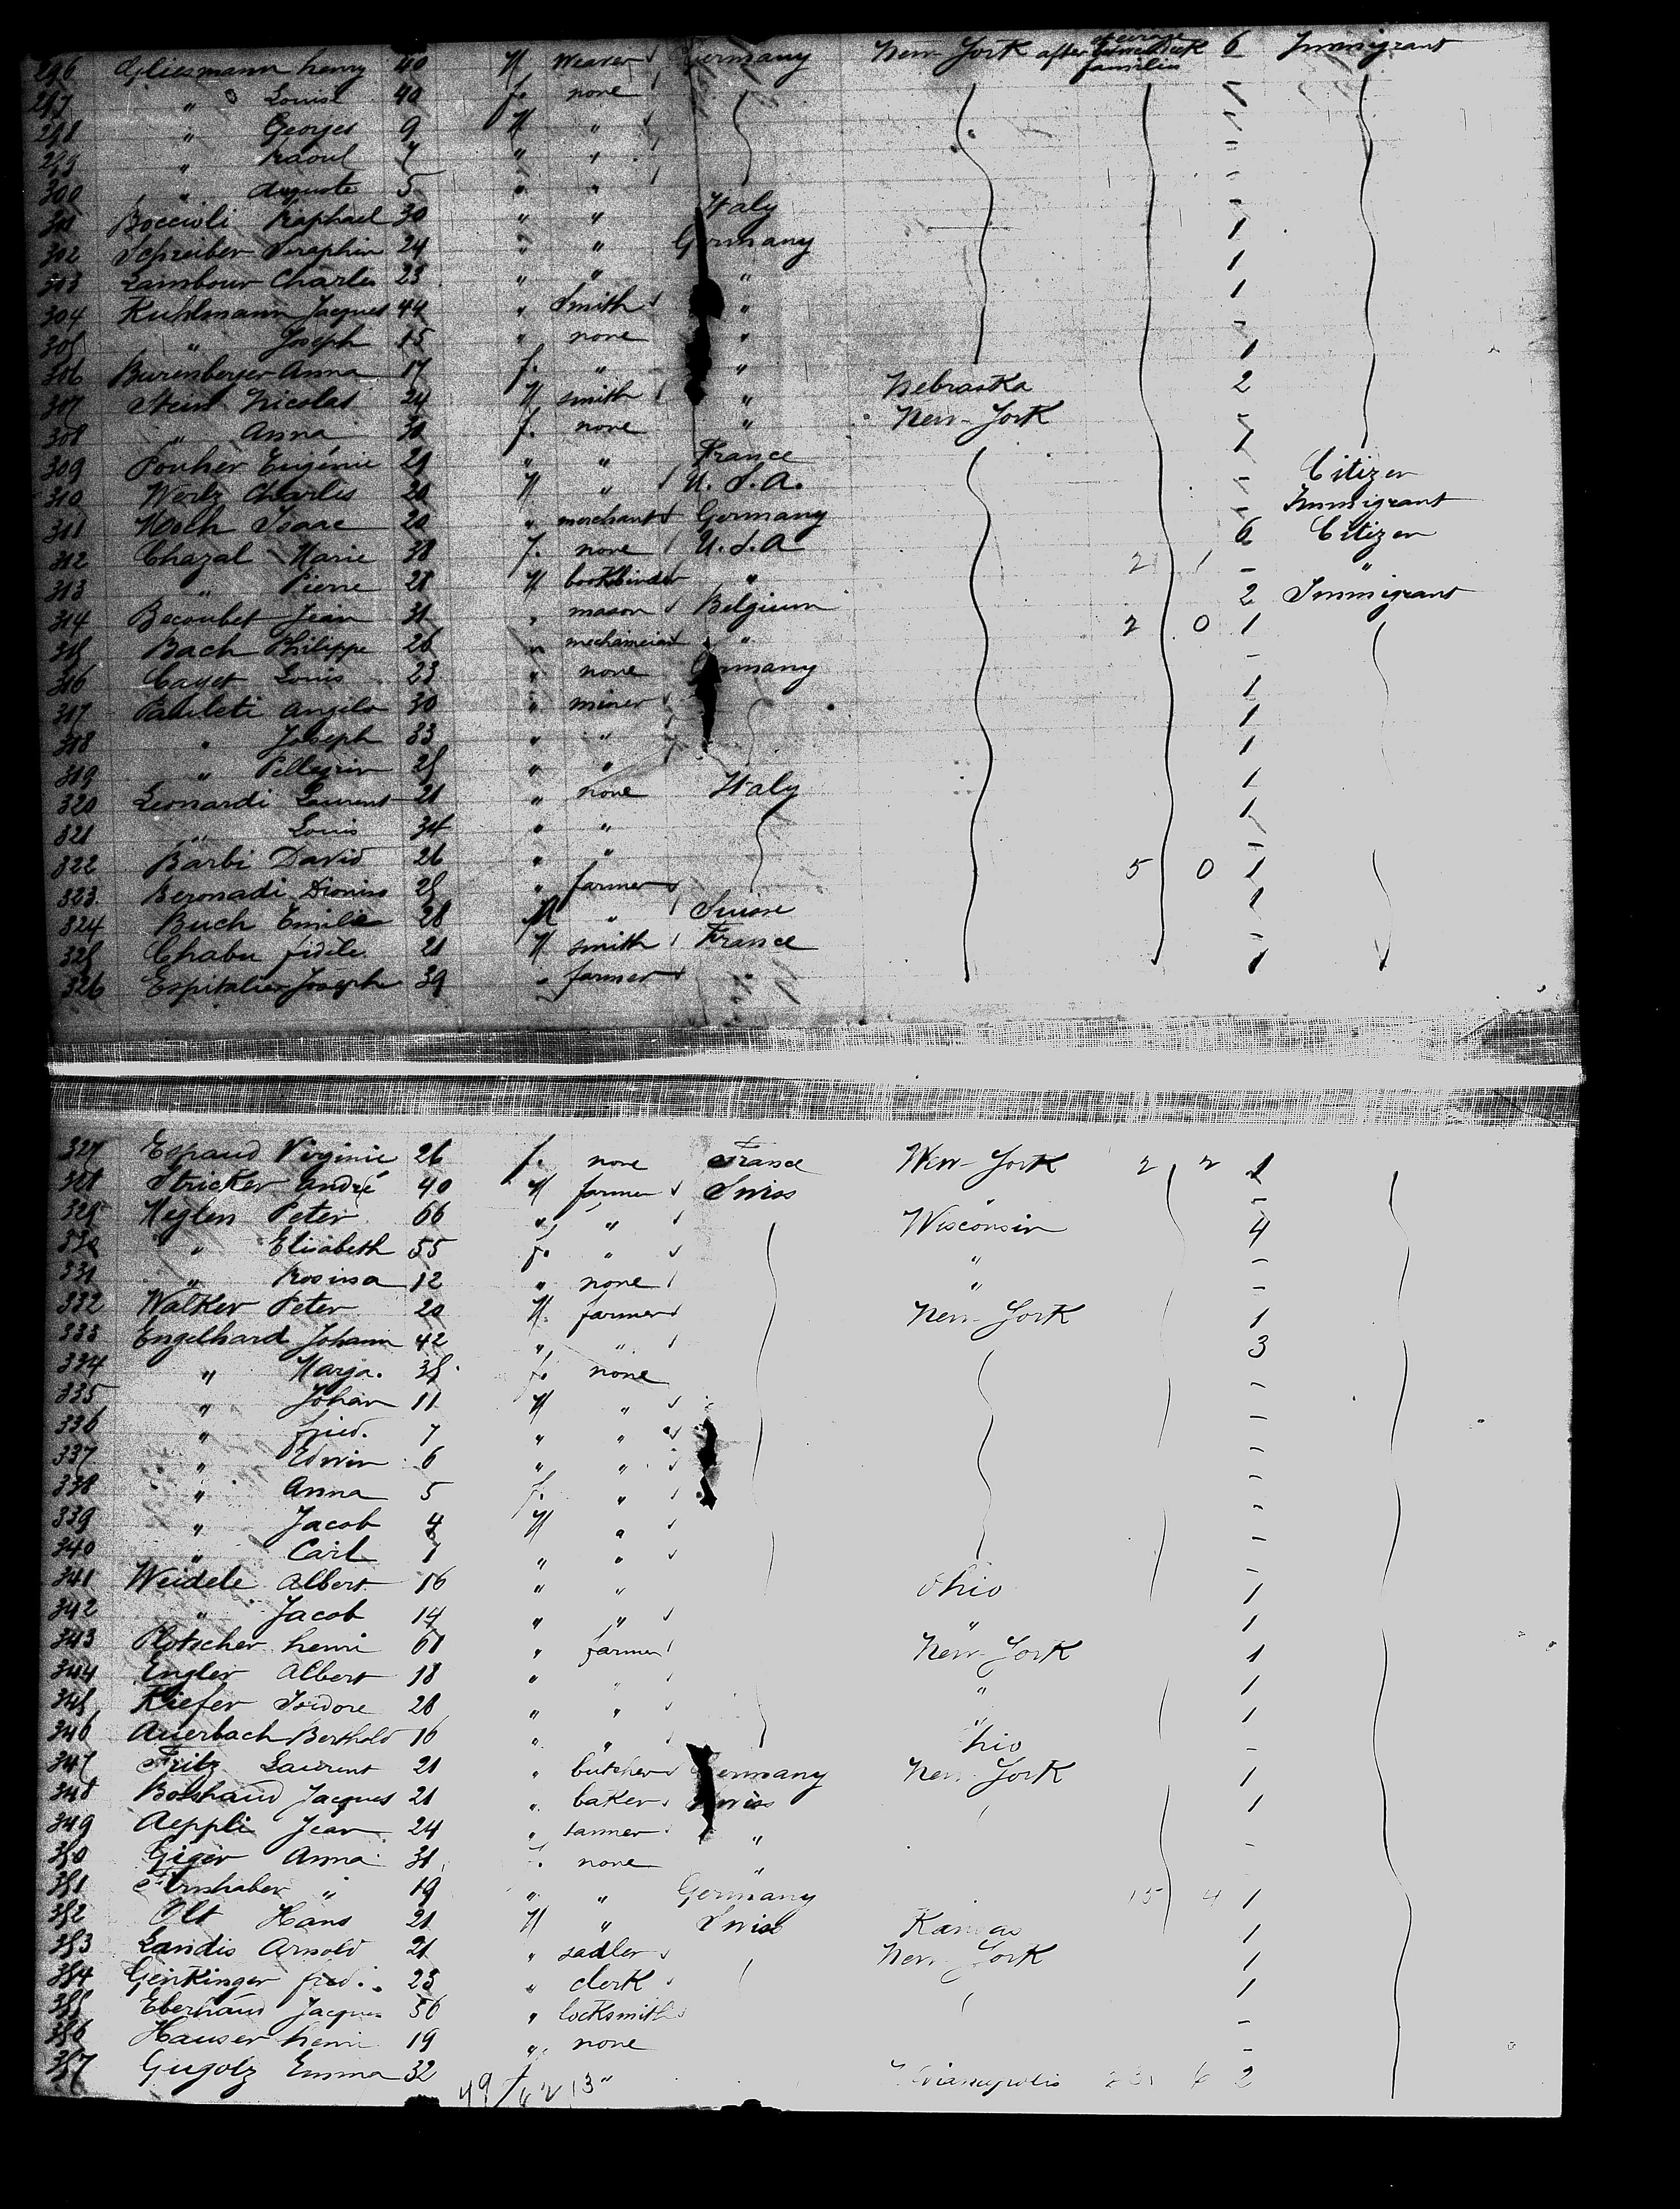 296 Gliesmann henry 40 M Weaver Germany New-York after steerage families 6 Immigrant
297 " Louise 40 f. none
298 " Georges 9 M "
299 " Raoul 7 " "
300 " Auguste 5 " "
301 Boccioli Raphael 30 " " Italy 1
302 Schreiber Seraphin 24 " " Germany 1
303 Lambour Charles 23 " " " 1
304 Kuhlmann Jacques 44 " Smith " -
305 " Joseph 15 " none " 1
306 Burenberger Anna 17 f. " " 2
307 Stein Nicolas 24 M smith " Nebraska
308 " Anna 30 f. none " New-York
309 Anna Eugénie 29 " " France Citizen
310 Wertz Charles 20 M " U.S.A. - Immigrant
311 Isaac 20 " merchant Germany 6 Citizen
312 Chazal Marie 38 f. none U.S.A 2 1 - "
313 " Pierre 28 M bookbinder " 2 Immigrant
314 Becoubet Jean 31 " mason Belgium 2 0 1
315 Bach Philippe 26 " mechanician " -
316 Cayet Louis 23 " none Germany 1
317 Pauleti Angilo 30 " miner 1
318 " Joseph 33 " " 1
319 " Pellegrin 25 " " 1
320 Leonardi Laurent 21 " none Italy 1
321 " Louis 34 " " -
322 Barbi David 26 " " 5 0 1
323 Beronadi Dionise 25 " farmer 1
324 Buch Emilie 28 M " Suisse -
325 Chabu fidele 21 M smith France 1
326 Espitalier Joseph 39 " farmer "
327 Espaud Virginie 26 f. none France New-York 2 2 1
328 Stricker André 40 M farmer Swiss -
329 Peter 66 " " Wisconsin 4
330 " Elisabeth 55 f. " " -
331 " Rosina 12 " none " -
332 Walker Peter 20 M. farmer New-York 1
333 Engelhard Johann 42 " " 3
334 " Marja. 38 f. none -
335 " Johan 11 M " -
336 " fried. 7 " " -
337 " Edwin 6 " " -
338 " Anna 5 f. " -
339 " Jacob 4 M " -
340 " Carl 1 " " -
341 Weidele Albert 16 " " Ohio 1
342 " Jacob 14 " " " 1
343 Plotscher henri 61 " farmer New-York 1
344 Engler Albert 18 " " " 1
345 Kiefer Isidore 28 " " " 1
346 Auerbach Berthold 16 " " hio -
347 Fritz Laurent 21 " butcher Germany New-York 1
348 Jacques 21 " baker Swiss 1
349 Aeppli Jean 24 " tanner " -
350 Giger Anna 31 f. none "
351 " 19 " " Germany 15 4 1
352 Olt Hans 21 M " Swiss Kansas 1
353 Landis Arnold 21 " sadler New-York 1
354 Genkinger fred. 23 " clerk 1
355 Jacques 56 " locksmith -
356 Hauser henri 19 " none -
357 Gugolz Emma 32 " 6 2